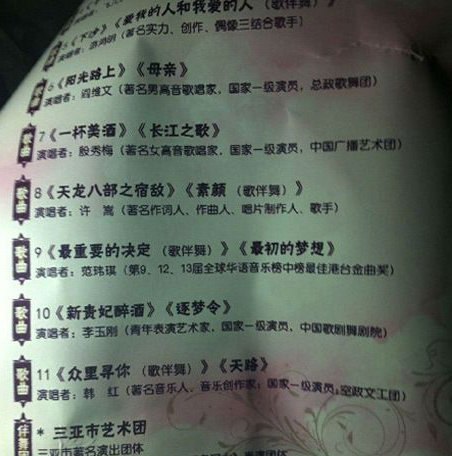 5《下沙》《爱我的人和我爱的人（歌伴舞）》
演唱者：游鸿明（著名实力、创作、偶像三结合歌手）
歌曲 6《阳光路上》《母亲》
演唱者：阎维文（著名男高音歌唱家，国家一级演员，总政歌舞团）
歌曲 7《一杯美酒》《长江之歌》
演唱者：殷秀梅（著名女高音歌唱家，国家一级演员，中国广播艺术团）
歌曲 8《天龙八部之宿敌》《素颜（歌伴舞）》
演唱者：许 嵩（著名作词人、作曲人、唱片制作人、歌手）
歌曲 9《最重要的决定（歌伴舞）》《最初的梦想》
演唱者：范玮琪（第9、12、13届全球华语音乐榜中榜最佳港台金曲奖）
歌曲 10《新贵妃醉酒》《逐梦令》
演唱者：李玉刚（青年表演艺术家，国家一级演员，中国歌剧舞剧院）
歌曲 11《众里寻你（歌伴舞）》《天路》
演唱者：韩 红（著名音乐人、音乐创作家，国家一级演员，空政文工团）
伴舞团 * 三亚市艺术团
三亚市著名演出团体